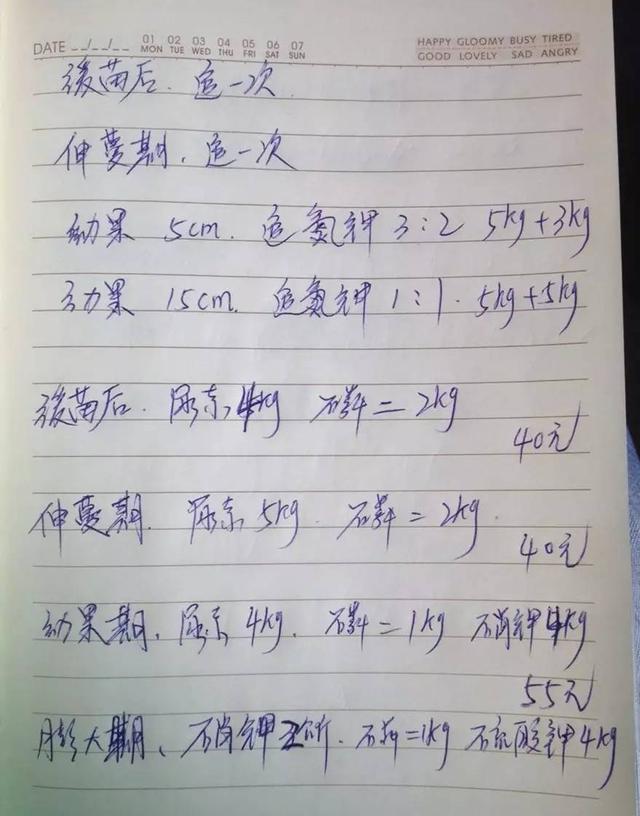 DATE __/__/__ 01 MON 02 TUE 03 WED 04 THU 05 FRI 06 SAT 07 SUN HAPPY GLOOMY BUSY TIRED
GOOD LOVELY SAD ANGRY
缓苗后. 追一次
伸蔓期. 追一次
幼果 5cm. 追氮钾 3:2 5kg+3kg
幼果 15cm. 追氮钾 1:1. 5kg+5kg
缓苗后. 尿素 4kg 磷二 2kg
40元
伸蔓期. 尿素 5kg. 磷二 2kg.
40元
幼果期. 尿素 4kg. 磷二 1kg 硝钾 4kg
55元
膨大期、硝钾 磷二 1kg 硫酸钾 4kg